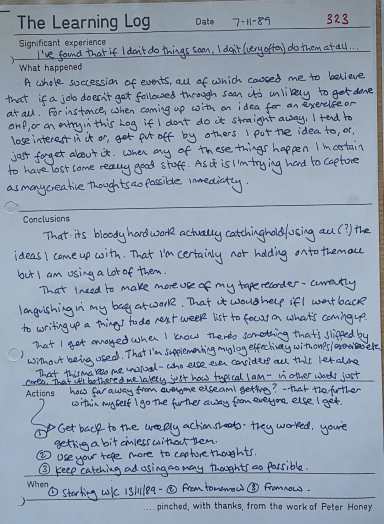 The Learning Log Date 7-11-89 323
Significant experience
I've found that if I don't do things soon, I don't (very often) do them at all...
What happened
A whole succession of events, all of which caused me to believe
that if a job doesn't get followed through soon its unlikely to get done
at all. For instance, when coming up with an idea for an exercise or
OHP, or an entry in this Log if I don't do it straight away, I tend to
lose interest in it or, get put off by others I put the idea to, or,
just forget about it. When any of these things happen I'm certain
to have lost some really good stuff. As it is I'm trying hard to capture
as many creative thoughts as possible immediately.
Conclusions
That its bloody hard work actually catching hold/using all (?) the
ideas I come up with. That I'm certainly not holding onto them all
but I am using a lot of them.
That I need to make more use of my tape recorder - currently
languishing in my bag at work. That it would help if I went back
to writing up a things to do next week list to focus on what's coming up.
That I get annoyed when I know theres something that's slipped by
without being used. That I'm supplementing my log effectively with
That this makes me unusual - who else even considers all this let alone
That it's bothered me lately just how typical I am - in other words just
Actions how far away from everyone else am I getting? - that the further
within myself I go the further away from everyone else I get.
① Get back to the weekly action sheets - they worked, you're
getting a bit aimless without them.
② Use your tape more to capture thoughts.
③ Keep catching and using as many thoughts as possible.
When ① Starting w/c 13/11/89 - ② From tomorrow ③ From now.
.... pinched, with thanks, from the work of Peter Honey